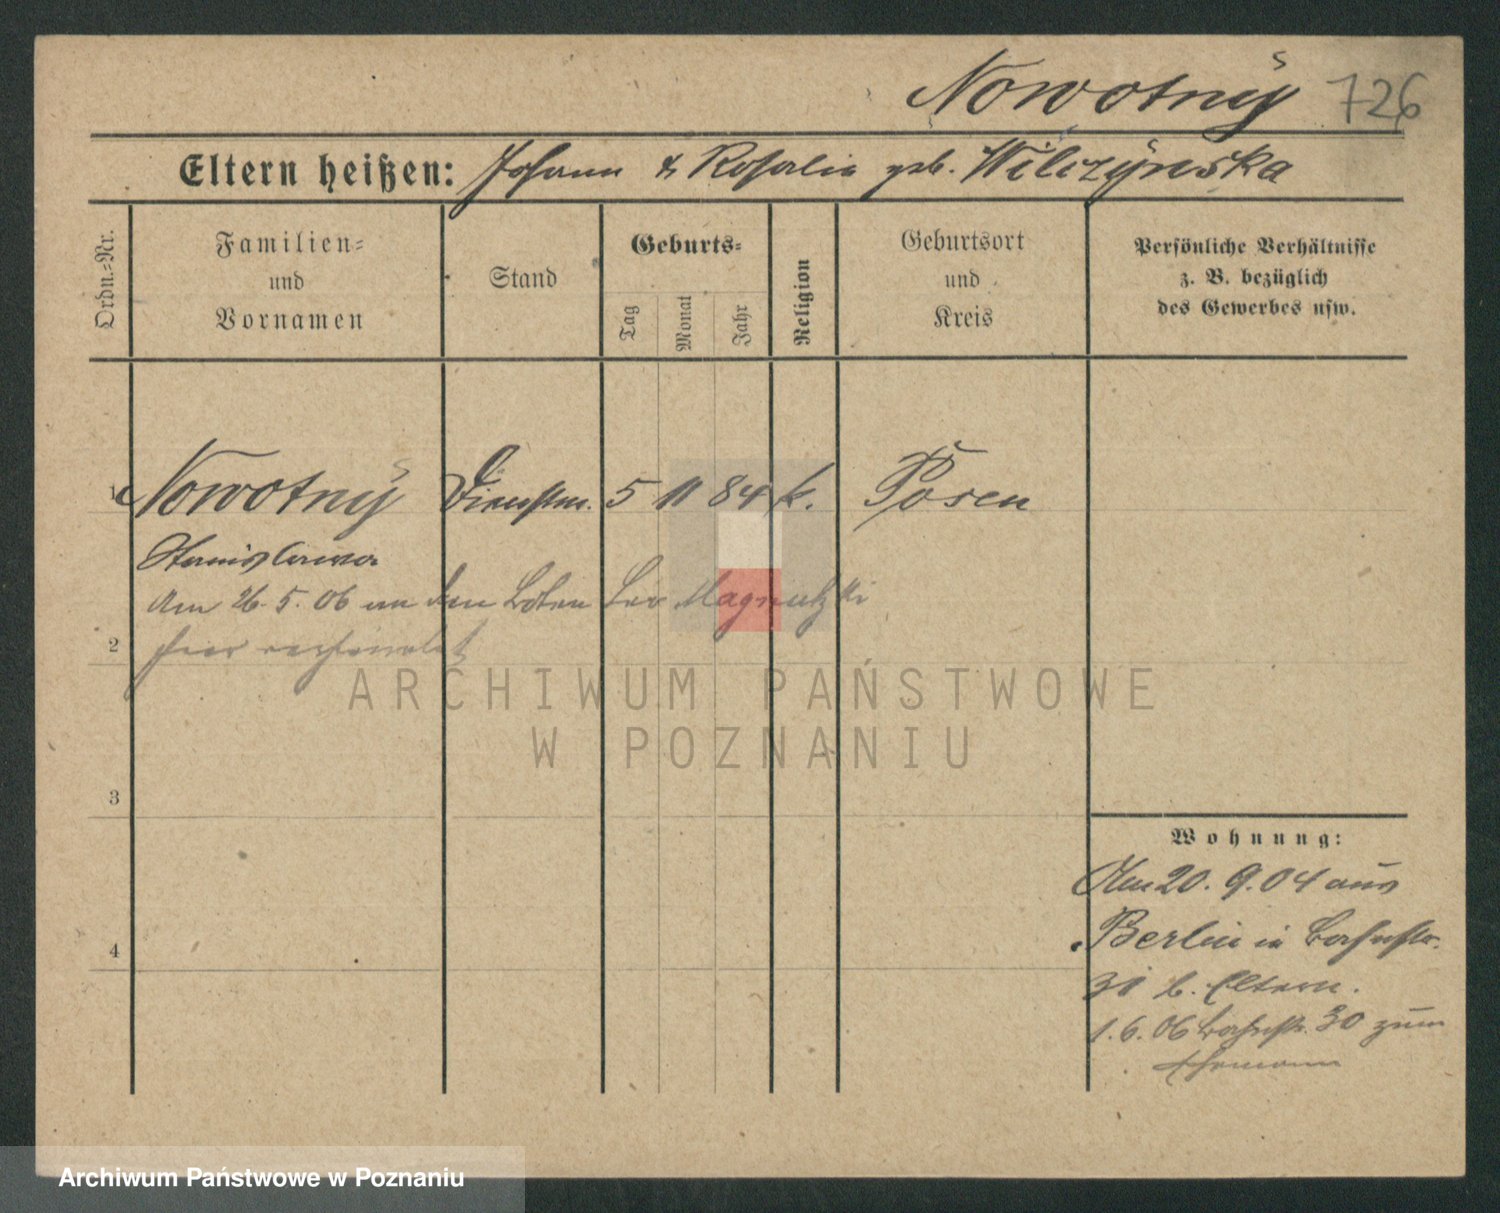 Nowotny 726
Eltern heißen: Johann & Rosalie geb. Wilczynska
Ordn.=Nr.
Familien=
und
Vornamen
Stand
Geburts=
Tag
Monat
Jahr
Religion
Geburtsort
und
Kreis
Persönliche Verhältnisse
z. B. bezüglich
des Gewerbes usw.
1 Nowotny Dienstm. 5 11 84 k. Posen
Stanislawa
Am 26. 5. 06 an den Boten Leo
2 hier verheiratet
ARCHIWUM PAŃSTWOWE
W POZNANIU
3
4
Wohnung:
Am 20. 9. 04 aus
Berlin in
31 b. Eltern.
1. 6. 06 30 zum
Ehemann
Archiwum Państwowe w Poznaniu